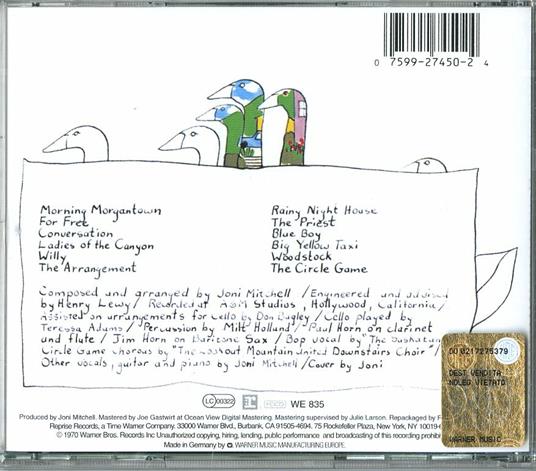 0 7599-27450-2 4
Morning Morgantown
For Free
Conversation
Ladies of the Canyon
Willy
The Arrangement
Rainy Night House
The Priest
Blue Boy
Big Yellow Taxi
Woodstock
The Circle Game
Composed and arranged by Joni Mitchell / Engineered and advised
by Henry Lewy / Recorded at A&M Studios, Hollywood, California /
Assisted on arrangements for Cello by Don Bagley / Cello played by
Teressa Adams / Percussion by Milt Holland / Paul Horn on clarinet
and flute / Jim Horn on Baritone Sax / Bop vocal by "The Saskatun
Circle Game chorous by "The Lookout Mountain United Downstairs Choir" /
Other vocals, guitar and piano by Joni Mitchell / Cover by Joni
LC 00322 WE 835
Produced by Joni Mitchell. Mastered by Joe Gastwirt at Ocean View Digital Mastering. Mastering supervised by Julie Larson. Repackaged by
Reprise Records, a Time Warner Company. 33000 Warner Blvd., Burbank, CA 91505-4694. 75 Rockefeller Plaza, New York, NY 10019-
© 1970 Warner Bros. Records Inc Unauthorized copying, hiring, lending, public performance and broadcasting of this recording prohib
Made in Germany by WARNER MUSIC MANUFACTURING EUROPE.
00 0217275379
DEST. VENDITA
NOLEG. VIETATO
WARNER MUSIC